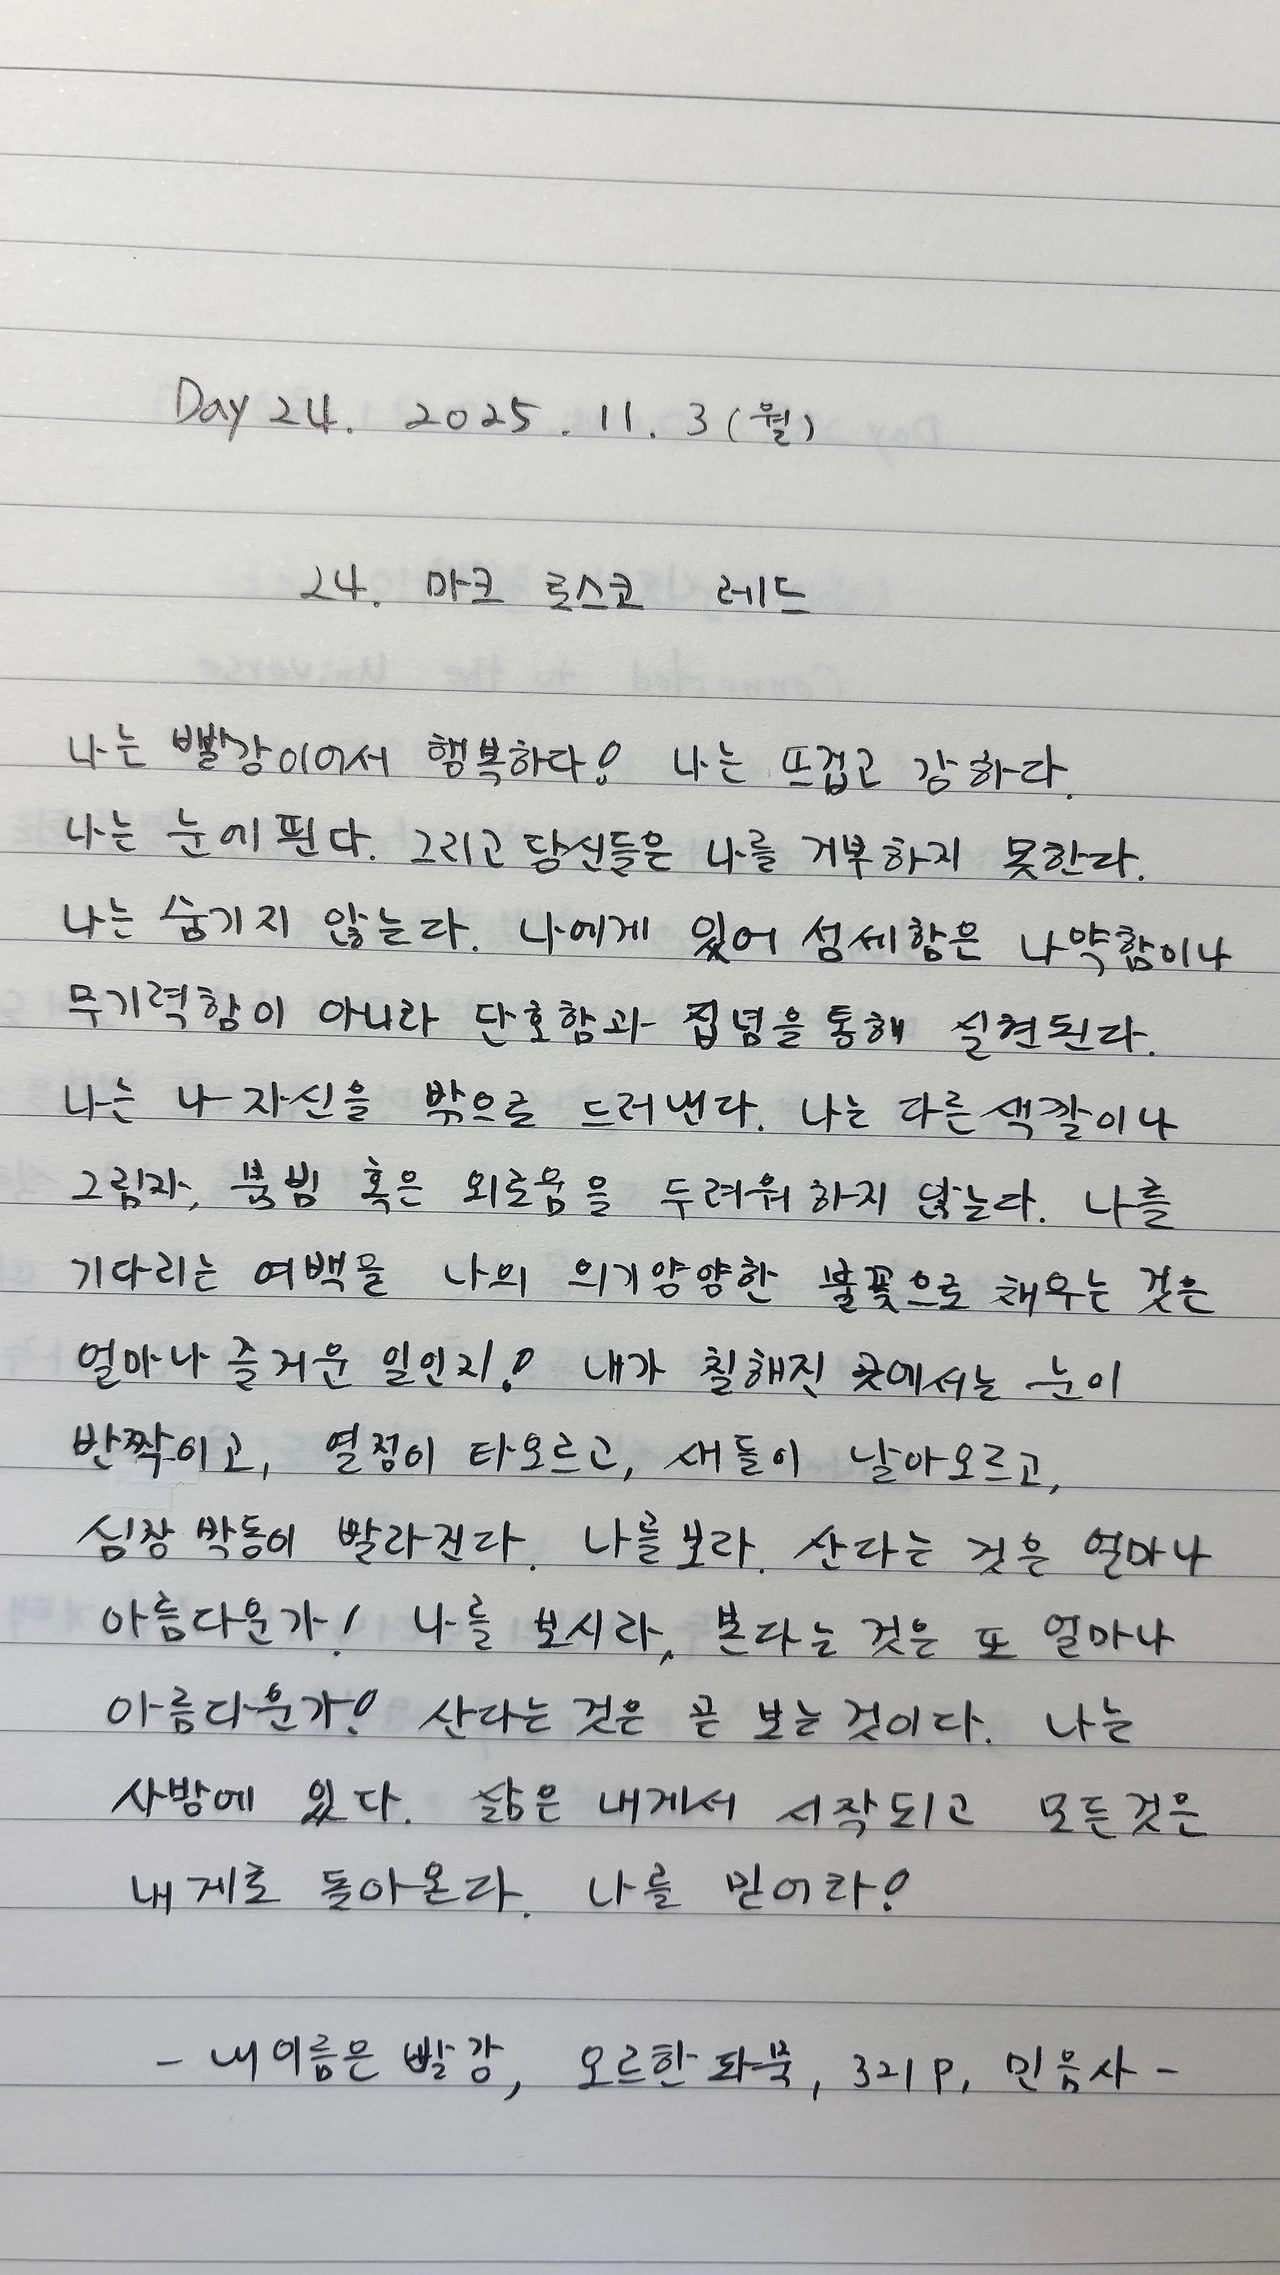 Day 24. 2025. 11. 3 (월)
24. 마크 로스코 레드
나는 빨강이어서 행복하다! 나는 뜨겁고 강하다.
나는 눈에 띈다. 그리고 당신들은 나를 거부하지 못한다.
나는 숨기지 않는다. 나에게 있어 섬세함은 나약함이나
무기력함이 아니라 단호함과 집념을 통해 실현된다.
나는 나 자신을 밖으로 드러낸다. 나는 다른 색깔이나
그림자, 붐빔 혹은 외로움을 두려워하지 않는다. 나를
기다리는 여백을 나의 의기양양한 불꽃으로 채우는 것은
얼마나 즐거운 일인지! 내가 칠해진 곳에서는 눈이
반짝이고, 열정이 타오르고, 새들이 날아오르고,
심장 박동이 빨라진다. 나를 보라. 산다는 것은 얼마나
아름다운가! 나를 보시라, 본다는 것은 또 얼마나
아름다운가! 산다는 것은 곧 보는 것이다. 나는
사방에 있다. 삶은 내게서 시작되고 모든것은
내게로 돌아온다. 나를 믿어라!
- 내 이름은 빨강, 오르한 파묵, 321p, 민음사 -